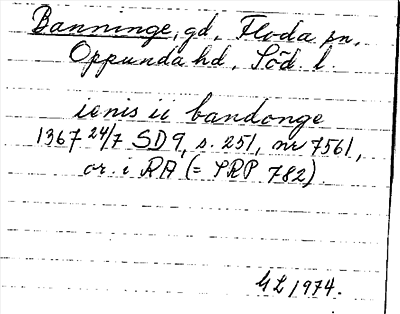 Banninge, gd, Floda sn,
Oppunda hd, Söd. l.
ienis ii bandonge
1367 24/7 SD 9, s. 251, nr 7561,
or. i RA (= SRP 782)
GL 1974.